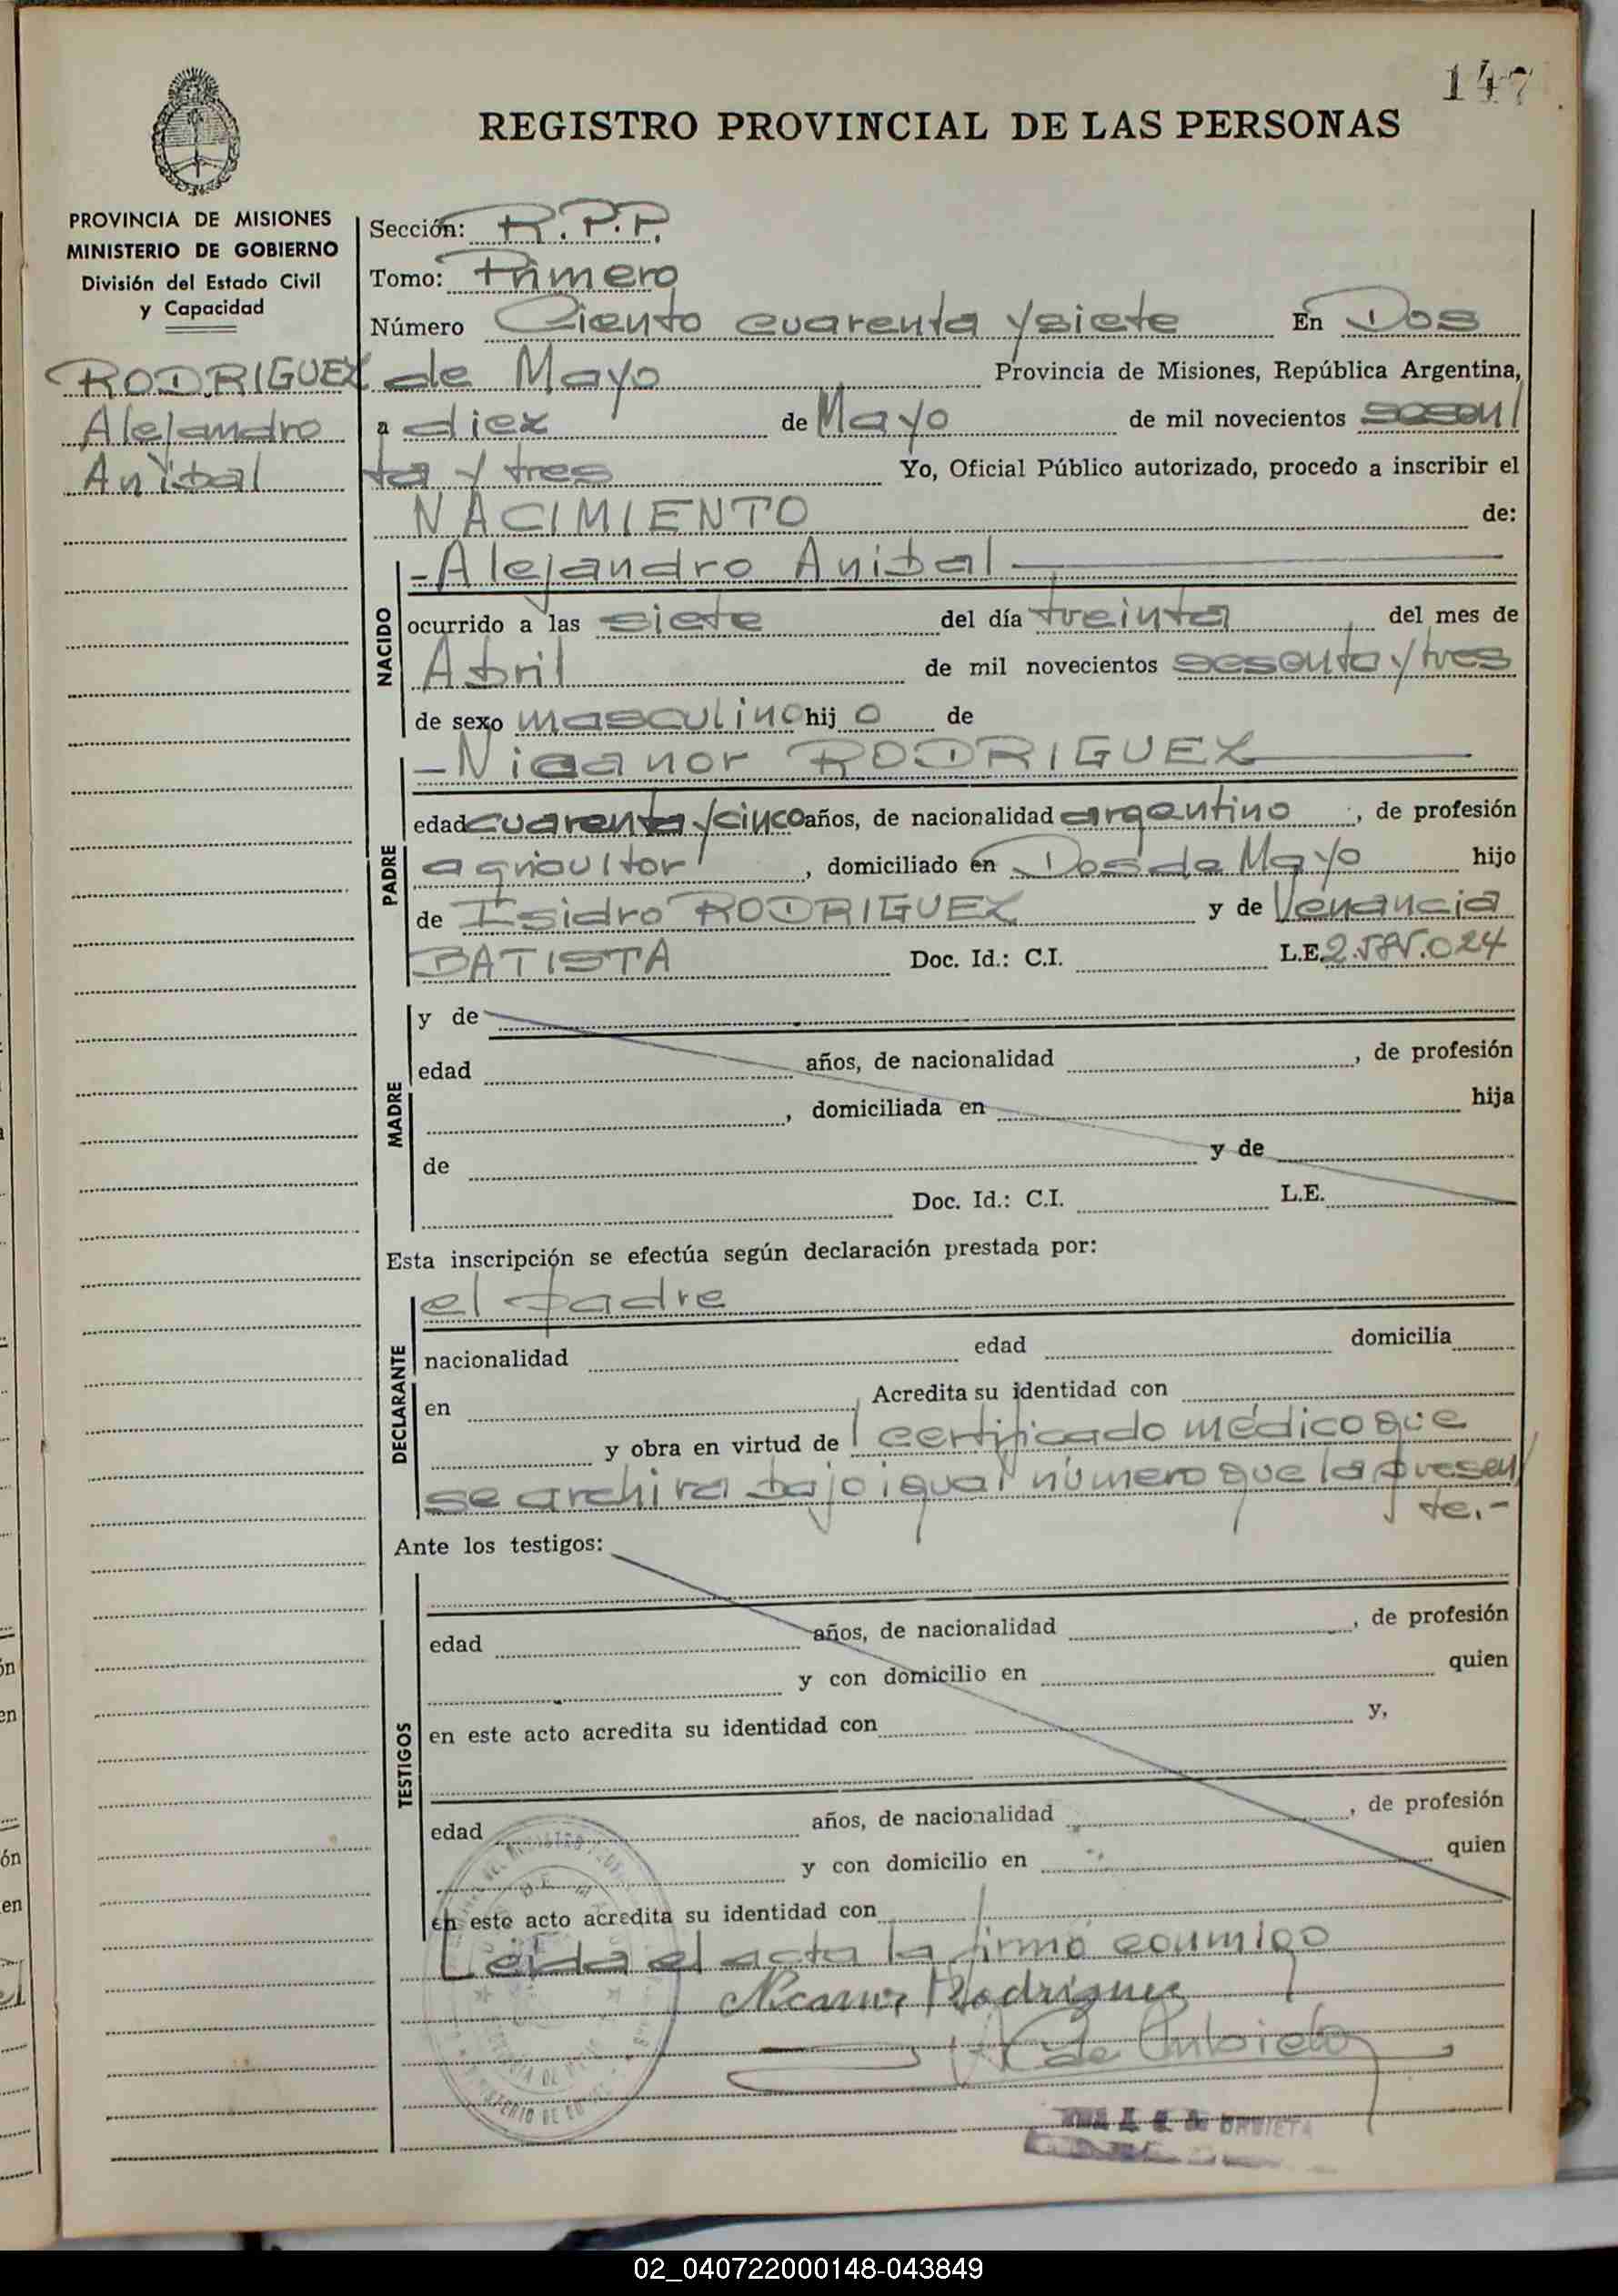 147
REGISTRO PROVINCIAL DE LAS PERSONAS
PROVINCIA DE MISIONES
MINISTERIO DE GOBIERNO
División del Estado Civil
y Capacidad
RODRIGUEZ
Alejandro
Anibal
Sección: R.P.P.
Tomo: Primero
Número Ciento cuarenta y siete En Dos
de Mayo Provincia de Misiones, República Argentina,
a diez de Mayo de mil novecientos sesen/
ta y tres Yo, Oficial Público autorizado, procedo a inscribir el
NACIMIENTO de:
NACIDO
-Alejandro Anibal
ocurrido a las siete del día treinta del mes de
Abril de mil novecientos sesenta y tres
de sexo masculino hijo de
PADRE
-Nicanor RODRIGUEZ
edad cuarenta y cinco años, de nacionalidad argentino, de profesión
agricultor, domiciliado en Dos de Mayo hijo
de Isidro RODRIGUEZ y de Venancia
BATISTA Doc. Id.: C.I. L.E.
MADRE
y de
edad años, de nacionalidad , de profesión
, domiciliada en hija
de y de
Doc. Id.: C.I. L.E.
Esta inscripción se efectúa según declaración prestada por:
DECLARANTE
el padre
nacionalidad edad domicilia
en Acredita su identidad con
y obra en virtud de certificado médico que
se archiva bajo igual número que la presen/
te.-
Ante los testigos:
TESTIGOS
edad años, de nacionalidad , de profesión
y con domicilio en quien
en este acto acredita su identidad con y,
edad años, de nacionalidad , de profesión
y con domicilio en quien
en este acto acredita su identidad con
Leida el acta la firmó conmigo
Nicanor Rodriguez
de Urbieta
de URBIETA
02_040722000148-043849